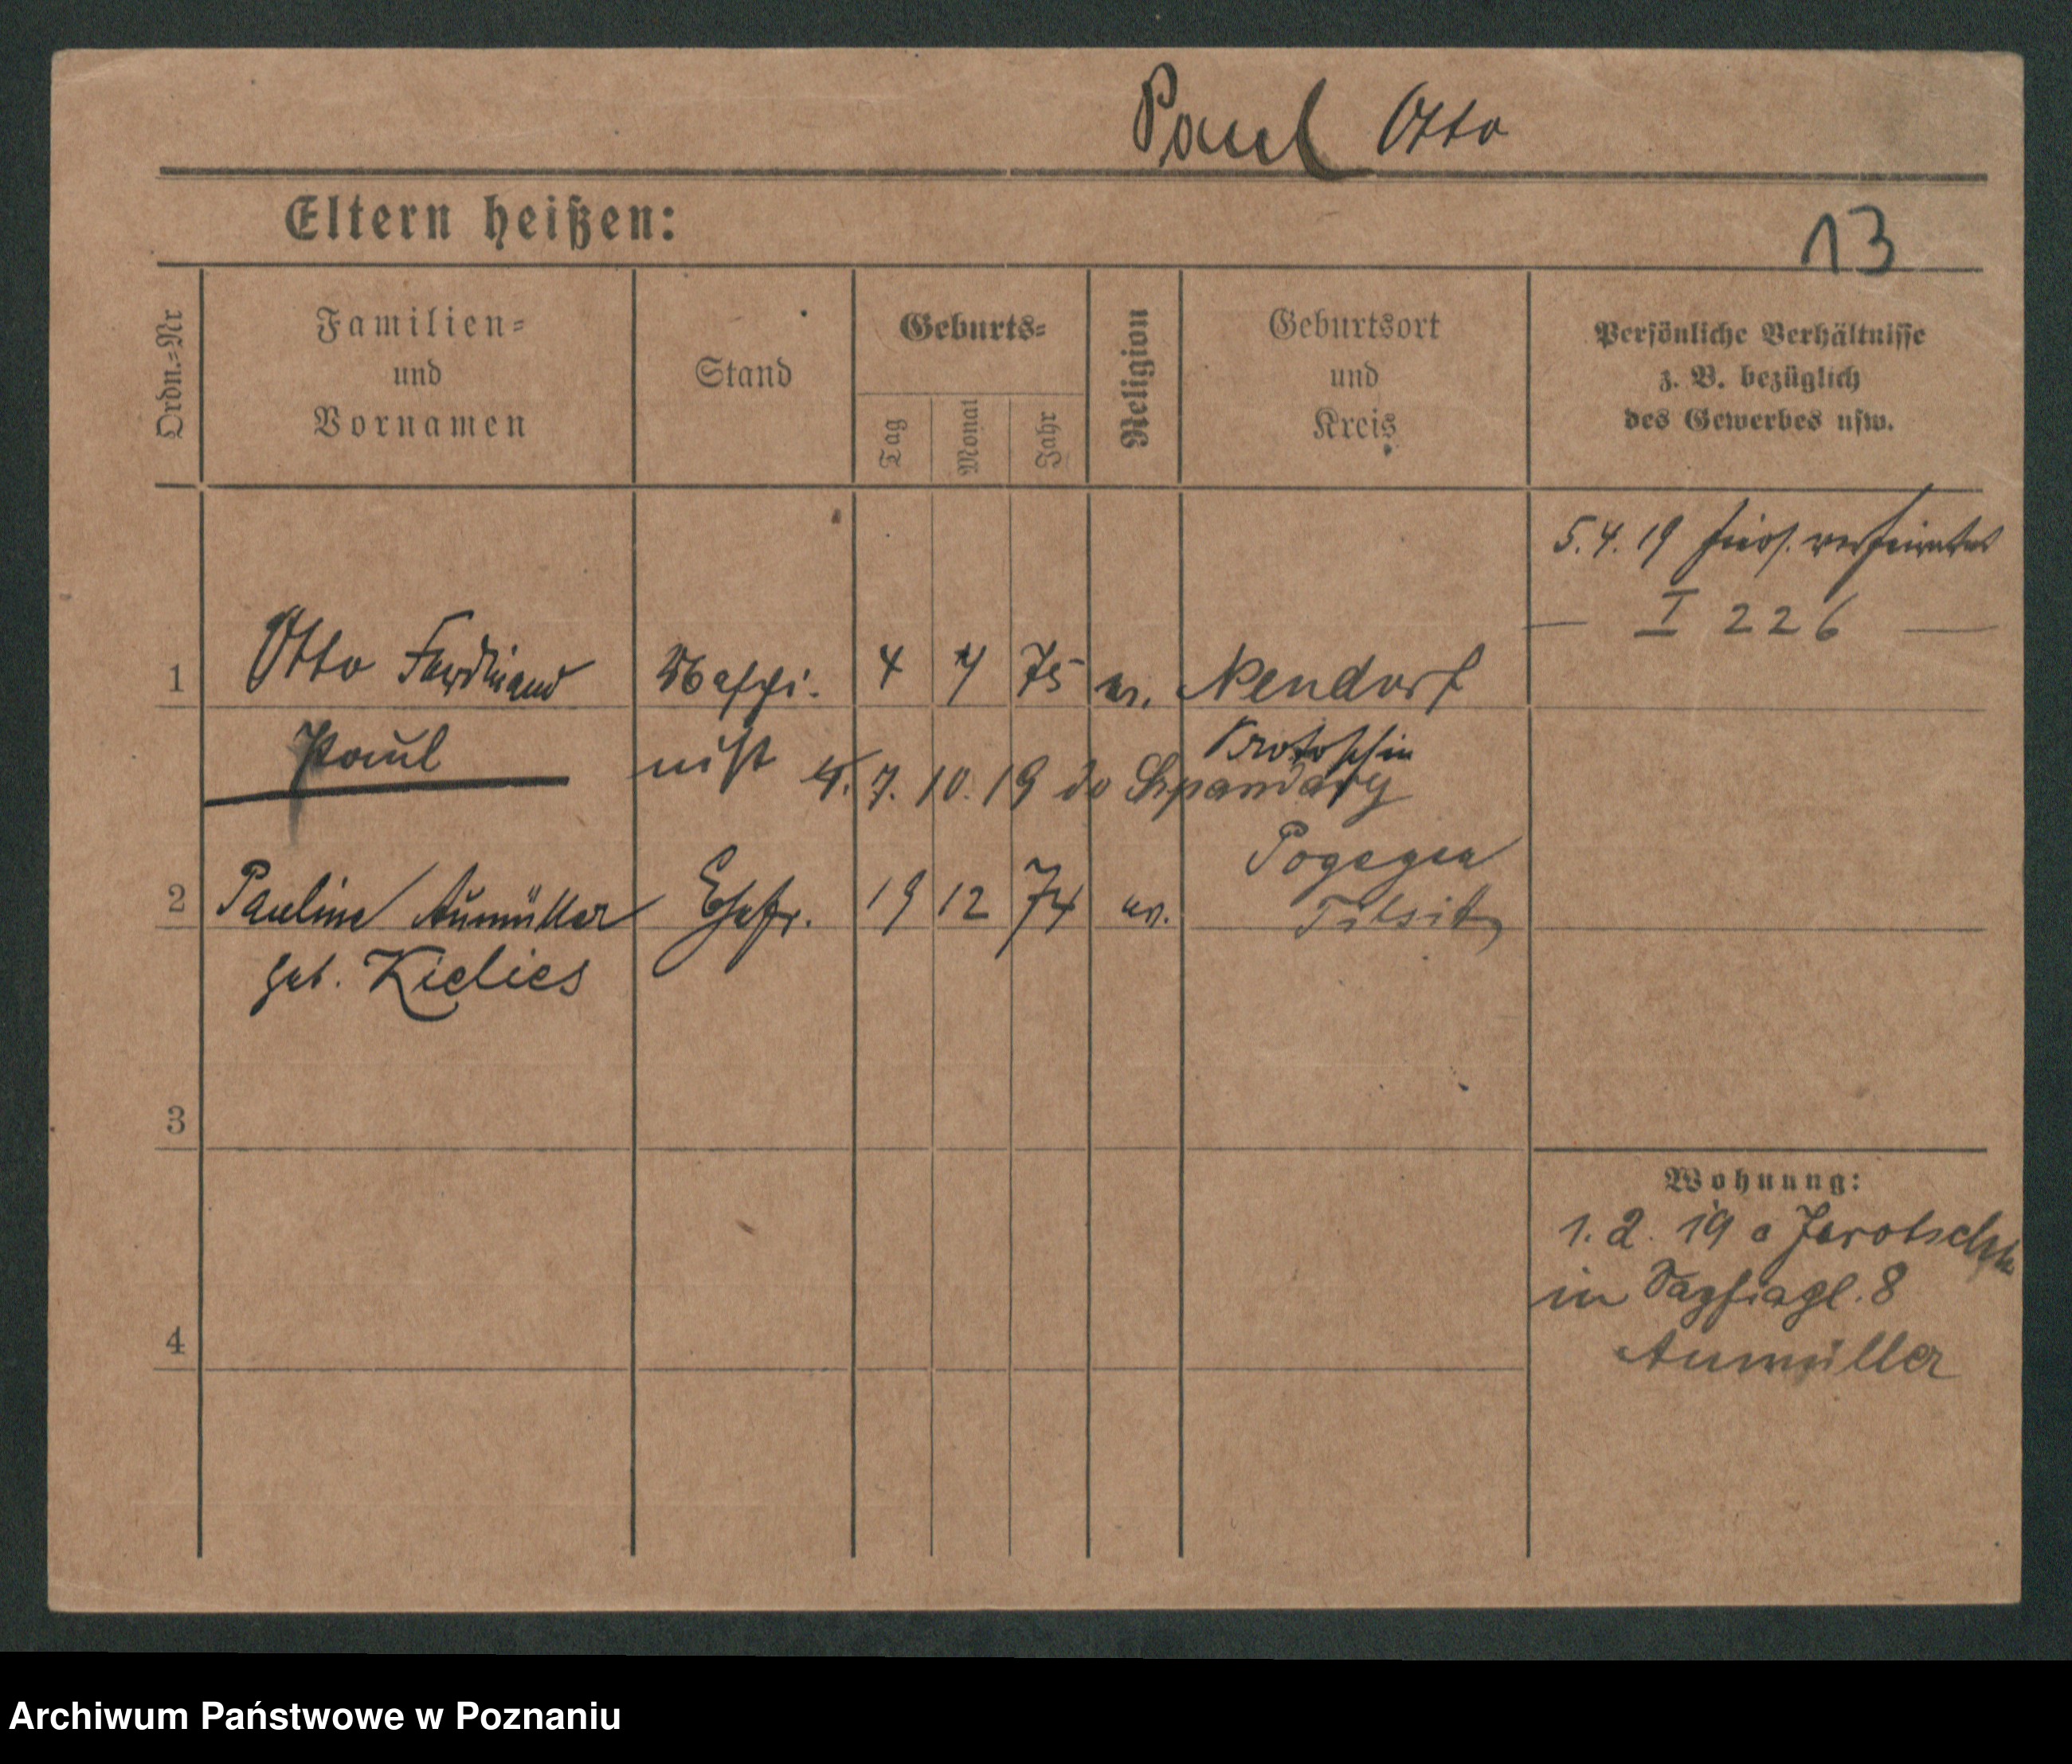 Paul Otto
Eltern heißen:
13
Ordn.=Nr
Familien=
und
Vornamen
Stand
Geburts=
Tag
Monat
Jahr
Religion
Geburtsort
und
Kreis
Persönliche Verhältnisse
z. B. bezüglich
des Gewerbes usw.
5.4.19 hier verheiratet
— I 226 —
1 Otto Ferdinand Maschi- 4 4 75 ev. Neudorf
Paul nist Krotoschin
7.10.19 do
Pogegen
2 Pauline Aumüller Ehefr. 19 12 74 ev. Tilsit
geb. Kielies
3
Wohnung:
1.2.19 a Jarotschin
in 8
4 Aumüller
Archiwum Państwowe w Poznaniu